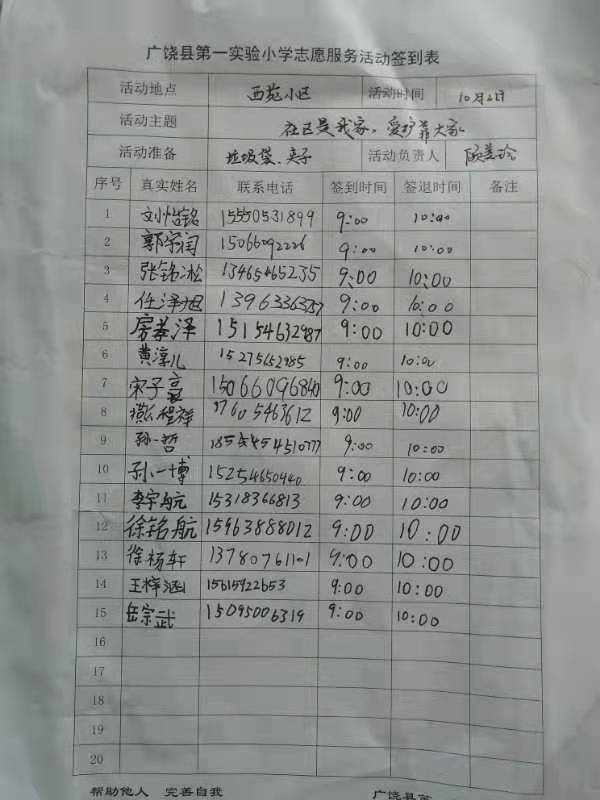 广饶县第一实验小学志愿服务活动签到表
活动地点 西苑小区 活动时间 10月2日
活动主题 社区是我家，爱护靠大家
活动准备 垃圾袋、夹子 活动负责人
序号 真实姓名 联系电话 签到时间 签退时间 备注
1 刘怡铭 15550531899 9:00 10:00
2 郭宇润 15066092226 9:00 10:00
3 张铭淞 13465465235 9:00 10:00
4 任泽旭 13963363757 9:00 10:00
5 房荃泽 15154632987 9:00 10:00
6 黄淳儿 15275652985 9:00 10:00
7 宋子豪 15066096840 9:00 10:00
8 9:00 10:00
9 孙一哲 9:00 10:00
10 孙一博 15254650440 9:00 10:00
11 李宇航 15318366813 9:00 10:00
12 徐铭航 15963888012 9:00 10:00
13 徐杨轩 13780761101 9:00 10:00
14 王梓涵 15615922653 9:00 10:00
15 岳宗武 15095006319 9:00 10:00
16
17
18
19
20
帮助他人 完善自我 广饶县